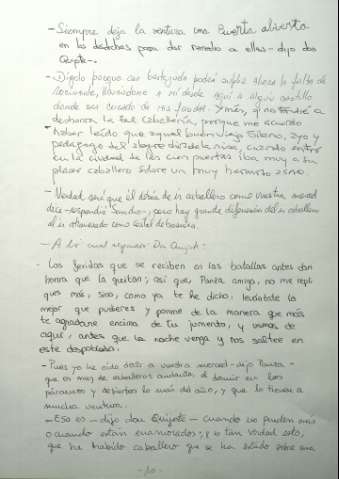 - Siempre deja la ventura una puerta abierta
en las desdichas para dar remedio a ellas - dijo don
Quijote -.
- Dígolo porque esa bestezuela podrá suplir ahora la falta de
Rocinante, llevándome a mí desde aquí a algún castillo
donde sea curado de mis feridas. Y más, que no tendré a
deshonra la tal caballería, porque me acuerdo
haber leído que aquel buen viejo Sileno, ayo y
pedagogo del alegre dios de la risa, cuando entró
en la ciudad de las cien puertas iba muy a su
placer caballero sobre un muy hermoso asno.
- Verdad será que él debía de ir caballero como vuestra merced
dice - respondió Sancho -; pero hay grande diferencia del ir caballero
al ir atravesado como costal de basura.
- A lo cual respondió Don Quijote:
- Las feridas que se reciben en las batallas antes dan
honra que la quitan; así que, Panza amigo, no me repli
ques más, sino, como ya te he dicho, levántate lo
mejor que pudieres y ponme de la manera que más
te agradare encima de tu jumento, y vamos de
aquí, antes que la noche venga y nos saltee en
este despoblado.
- Pues yo he oído decir a vuestra merced - dijo Panza -
que es muy de caballeros andantes el dormir en los
páramos y desiertos lo más del año, y que lo tienen a
mucha ventura.
- Eso es - dijo don Quijote - cuando no pueden más
o cuando están enamorados; y es tan verdad esto,
que ha habido caballero que se ha estado sobre una
- 10 -